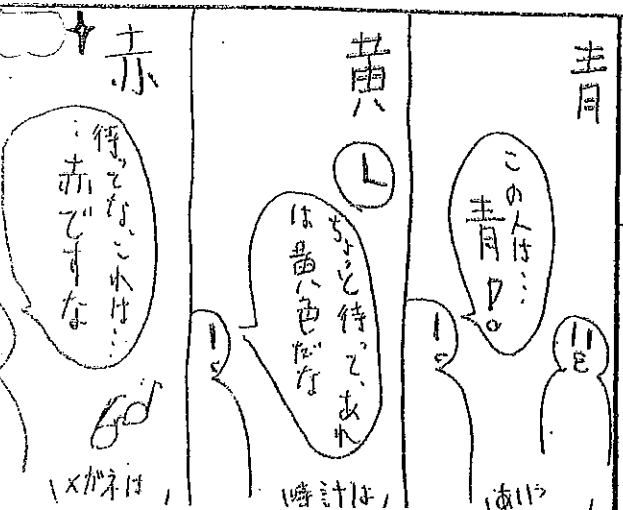 青
この人は…
青!。
あいつ
黄
ちょっと待って、あれ
は黄色だな
時計は
赤
待てな、これは…
…赤ですな
メガネは